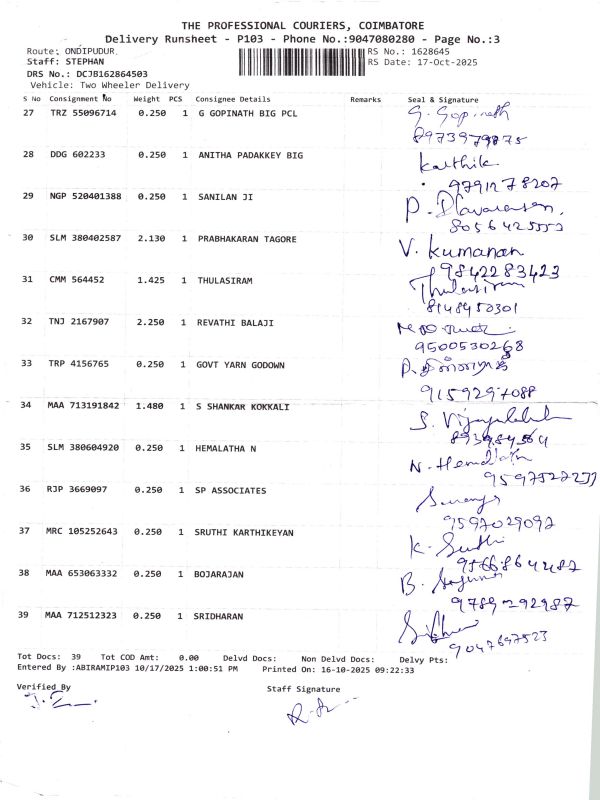 THE PROFESSIONAL COURIERS, COIMBATORE
Delivery Runsheet - P103 - Phone No.:9047080280 - Page No.:3
Route: ONDIPUDUR
RS No.: 1628645
Staff: STEPHAN
RS Date: 17-Oct-2025
DRS No.: DCJB162864503
Vehicle: Two Wheeler Delivery
S No Consignment No Weight PCS Consignee Details Remarks Seal & Signature
27 TRZ 55096714 0.250 1 G GOPINATH BIG PCL G. Gopinath
8973979875
28 DDG 602233 0.250 1 ANITHA PADAKKEY BIG Karthik
9791278207
29 NGP 520401388 0.250 1 SANILAN JI
30 SLM 380402587 2.130 1 PRABHAKARAN TAGORE V. Kumanan
9842283423
31 CMM 564452 1.425 1 THULASIRAM Thulasiram
8148450301
32 TNJ 2167907 2.250 1 REVATHI BALAJI
9500530268
33 TRP 4156765 0.250 1 GOVT YARN GODOWN
9159297088
34 MAA 713191842 1.480 1 S SHANKAR KOKKALI S. Vijayalakshmi
35 SLM 380604920 0.250 1 HEMALATHA N N. Hemalatha
36 RJP 3669097 0.250 1 SP ASSOCIATES
9597029092
37 MRC 105252643 0.250 1 SRUTHI KARTHIKEYAN K. Sruthi
38 MAA 653063332 0.250 1 BOJARAJAN
9789292987
39 MAA 712512323 0.250 1 SRIDHARAN
9047697523
Tot Docs: 39 Tot COD Amt: 0.00 Delvd Docs: Non Delvd Docs: Delvy Pts:
Entered By :ABIRAMIP103 10/17/2025 1:00:51 PM Printed On: 16-10-2025 09:22:33
Verified By Staff Signature